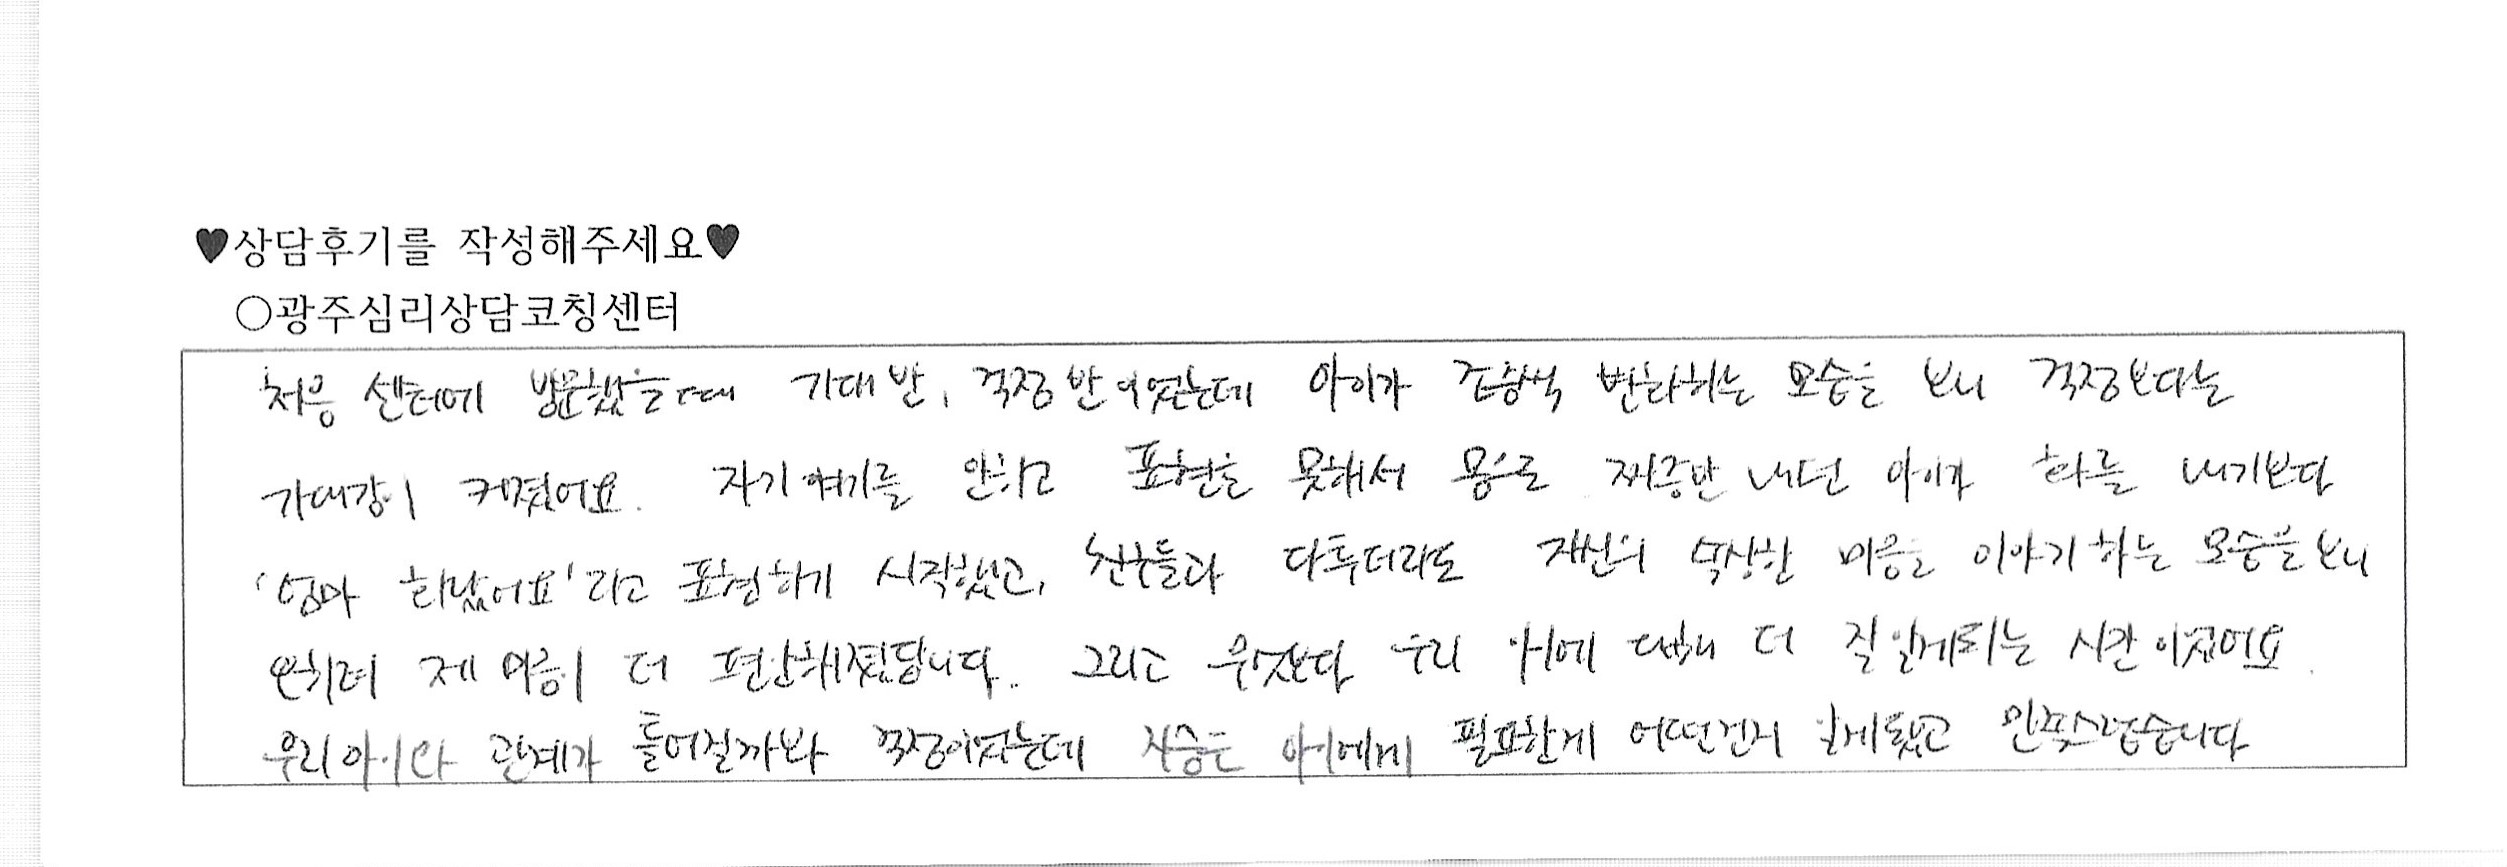 ♥상담후기를 작성해주세요♥
○광주심리상담코칭센터
처음 센터에 방문했을때 기대 반, 걱정 반이었는데 아이가 조금씩 변화하는 모습을 보니 걱정보다는
기대감이 커졌어요. 자기 얘기를 안하고 표현을 못해서 몸으로 짜증만 내던 아이가 화를 내기보다
'엄마 화났어요'라고 표현하기 시작했고, 친구들과 다투더라도 자신의 속상한 마음을 이야기하는 모습을 보니
오히려 제 마음이 더 편안해졌답니다. 그리고 무엇보다 우리 아이에 대해 더 잘 알게되는 시간이었어요.
우리아이와 관계가 틀어질까봐 걱정이었는데 지금은 아이에게 필요한게 어떤건지 알게됐고 만족스럽습니다